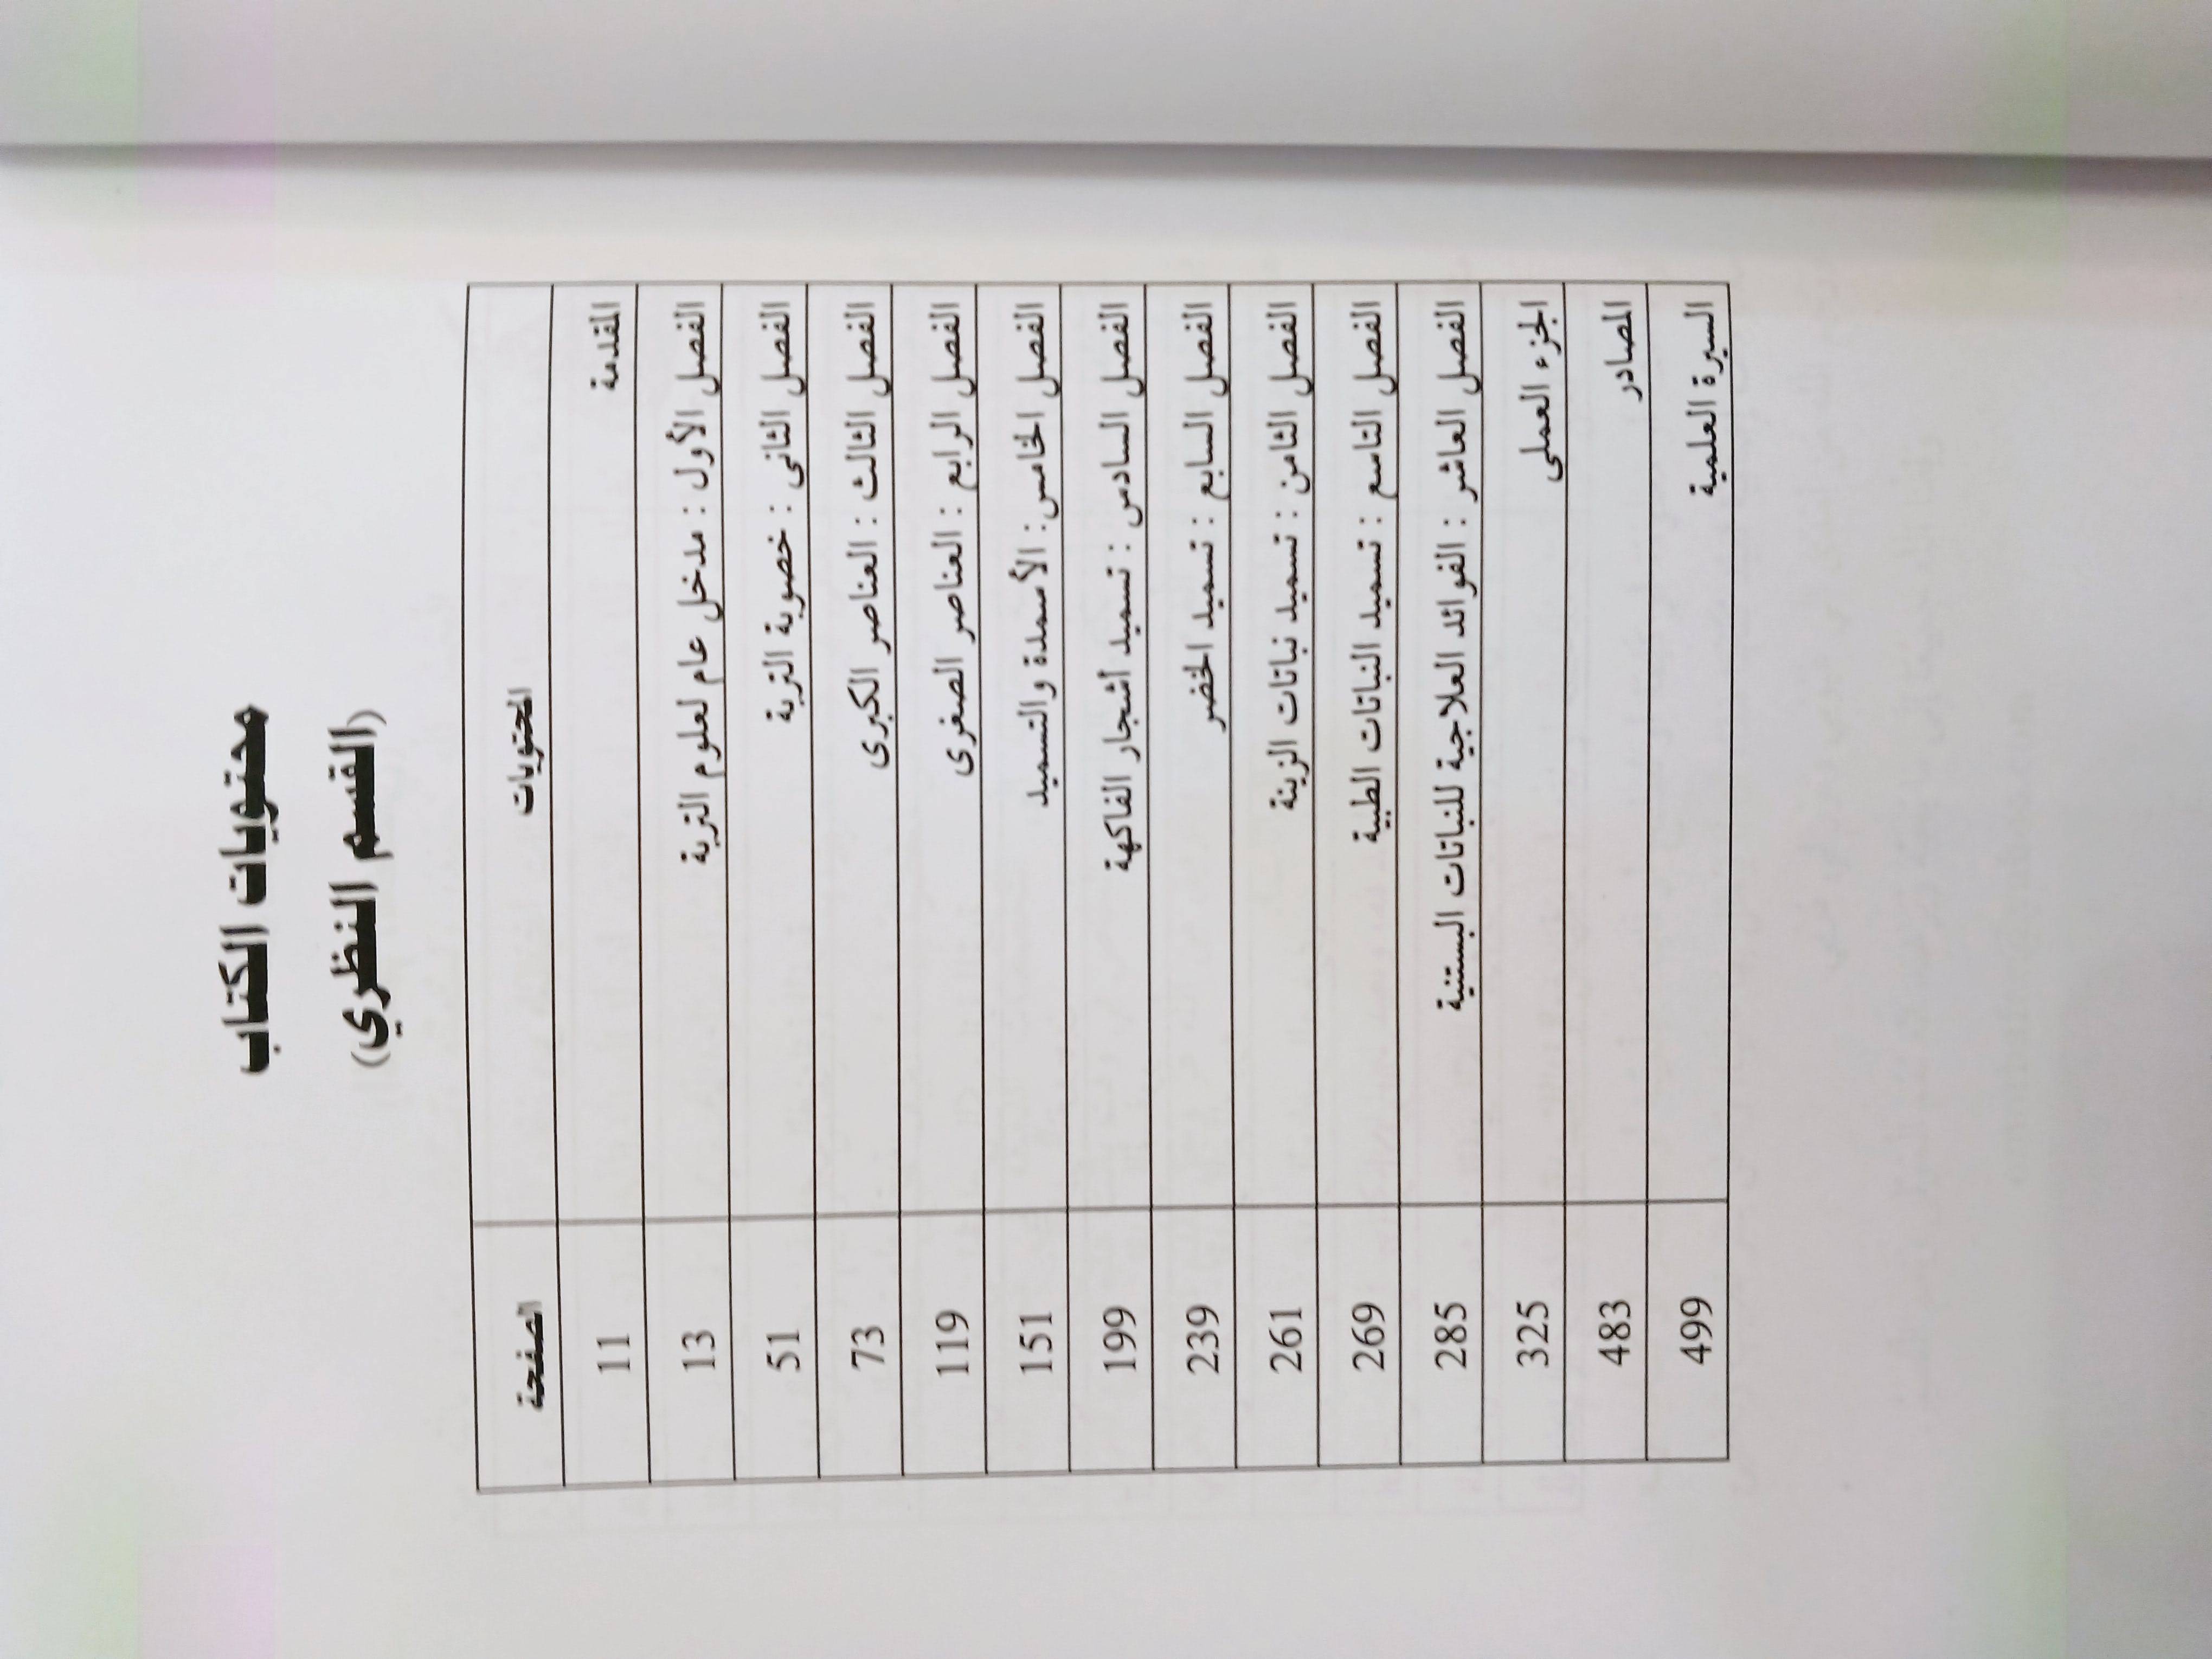 محتويات الكتاب
(القسم النظري)
المحتويات الصفحة
المقدمة 11
الفصل الأول : مدخل عام لعلوم التربة 13
الفصل الثانى : خصوبة التربة 51
الفصل الثالث : العناصر الكبرى 73
الفصل الرابع : العناصر الصغرى 119
الفصل الخامس: الأسمدة والتسميد 151
الفصل السادس : تسميد أشجار الفاكهة 199
الفصل السابع : تسميد الخضر 239
الفصل الثامن : تسميد نباتات الزينة 261
الفصل التاسع : تسميد النباتات الطبية 269
الفصل العاشر : الفوائد العلاجية للنباتات البستنية 285
الجزء العملى 325
المصادر 483
السيرة العلمية 499